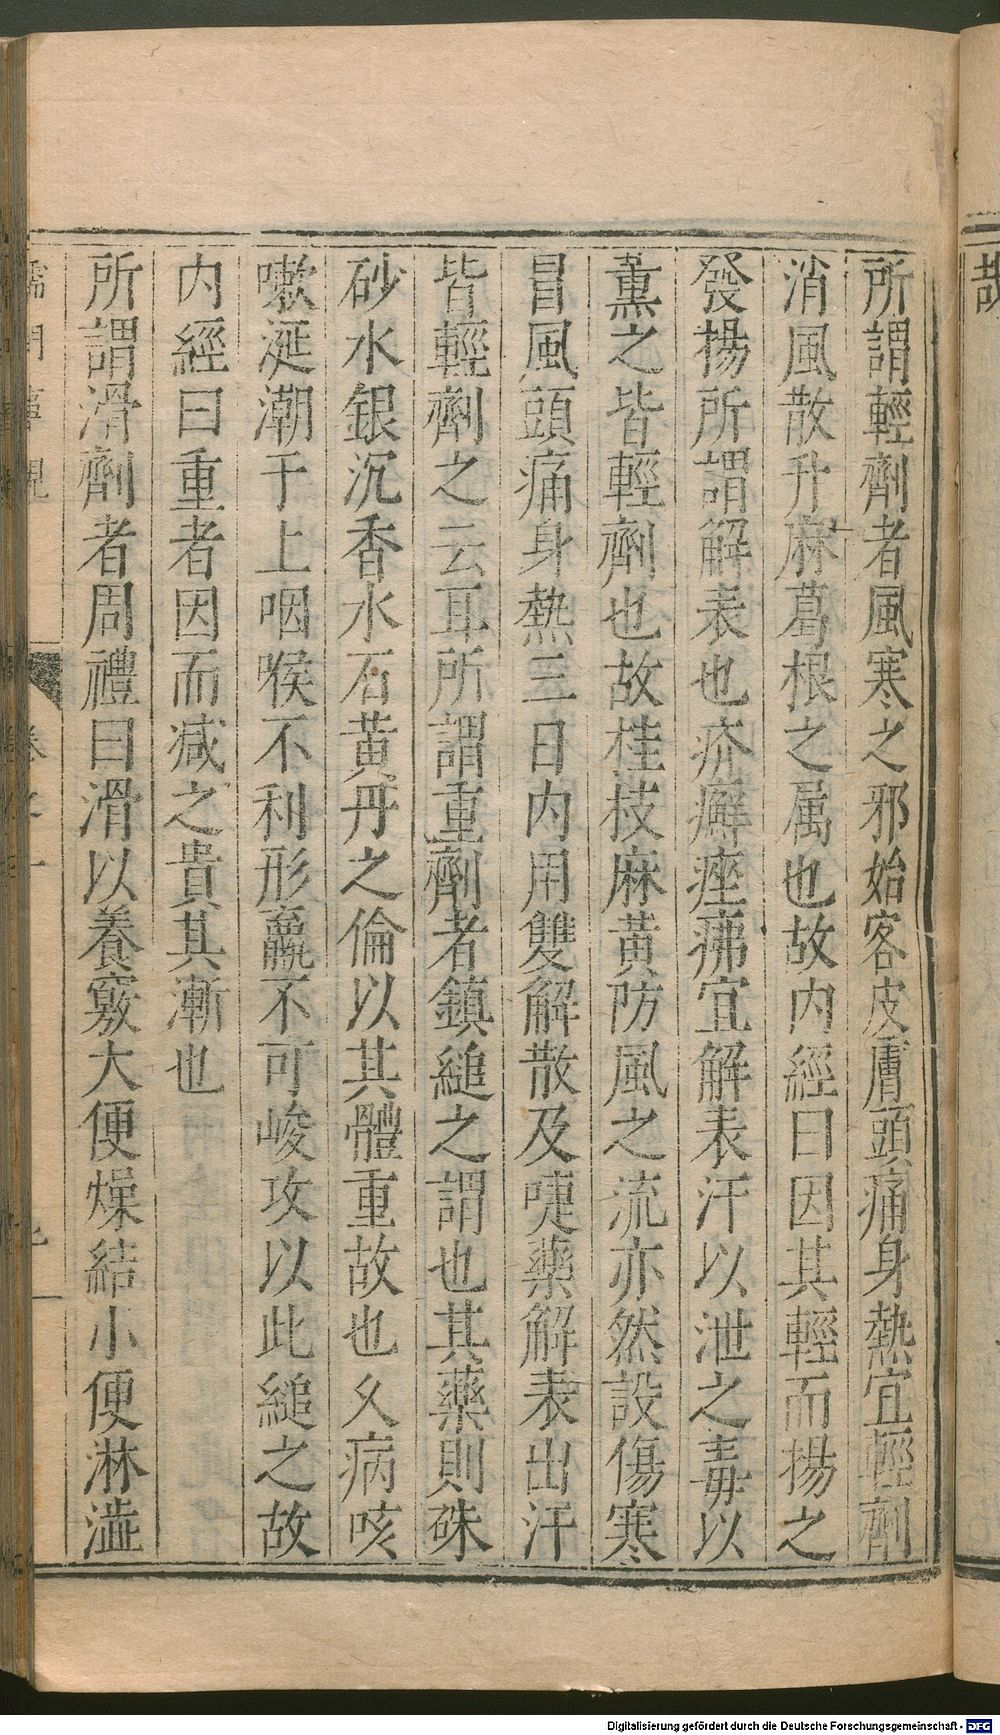 所謂輕劑者風寒之邪始客皮膚頭痛身熱宜輕劑
消風散升麻葛根之属也故内經曰因其輕而揚之
發揚所謂解表也疥癬痤疿宜解表汗以泄之毒以
薰之皆輕劑也故桂枝麻黃防風之流亦然設傷寒
冒風頭痛身熱三日内用雙解散及嚏藥解表出汗
皆輕劑之云耳所謂重劑者鎮縋之謂也其藥則硃
砂水銀沉香水石黃丹之倫以其體重故也久病咳
嗽涎潮于上咽喉不利形羸不可峻攻以此縋之故
内經曰重者因而减之貴其漸也
所謂滑劑者周禮曰滑以養竅大便燥結小便淋澁
Digitalisierung gefördert durch die Deutsche Forschungsgemeinschaft - DFG